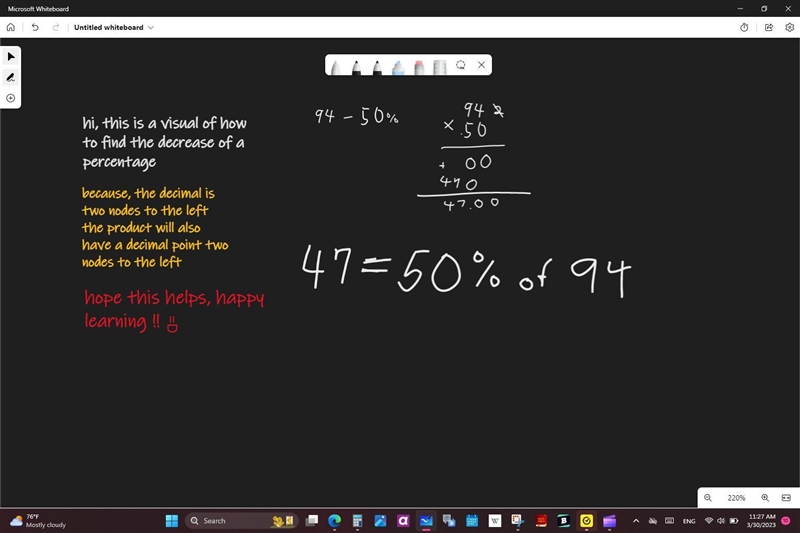 Microsoft Whiteboard
Untitled whiteboard
hi, this is a visual of how
to find the decrease of a
percentage
because, the decimal is
two nodes to the left
the product will also
have a decimal point two
nodes to the left
hope this helps, happy
learning !!
94 - 50%
94
× .50
+ 00
470
47.00
47 = 50% of 94
220%
76°F
Mostly cloudy
Search
ENG
11:27 AM
3/30/2023